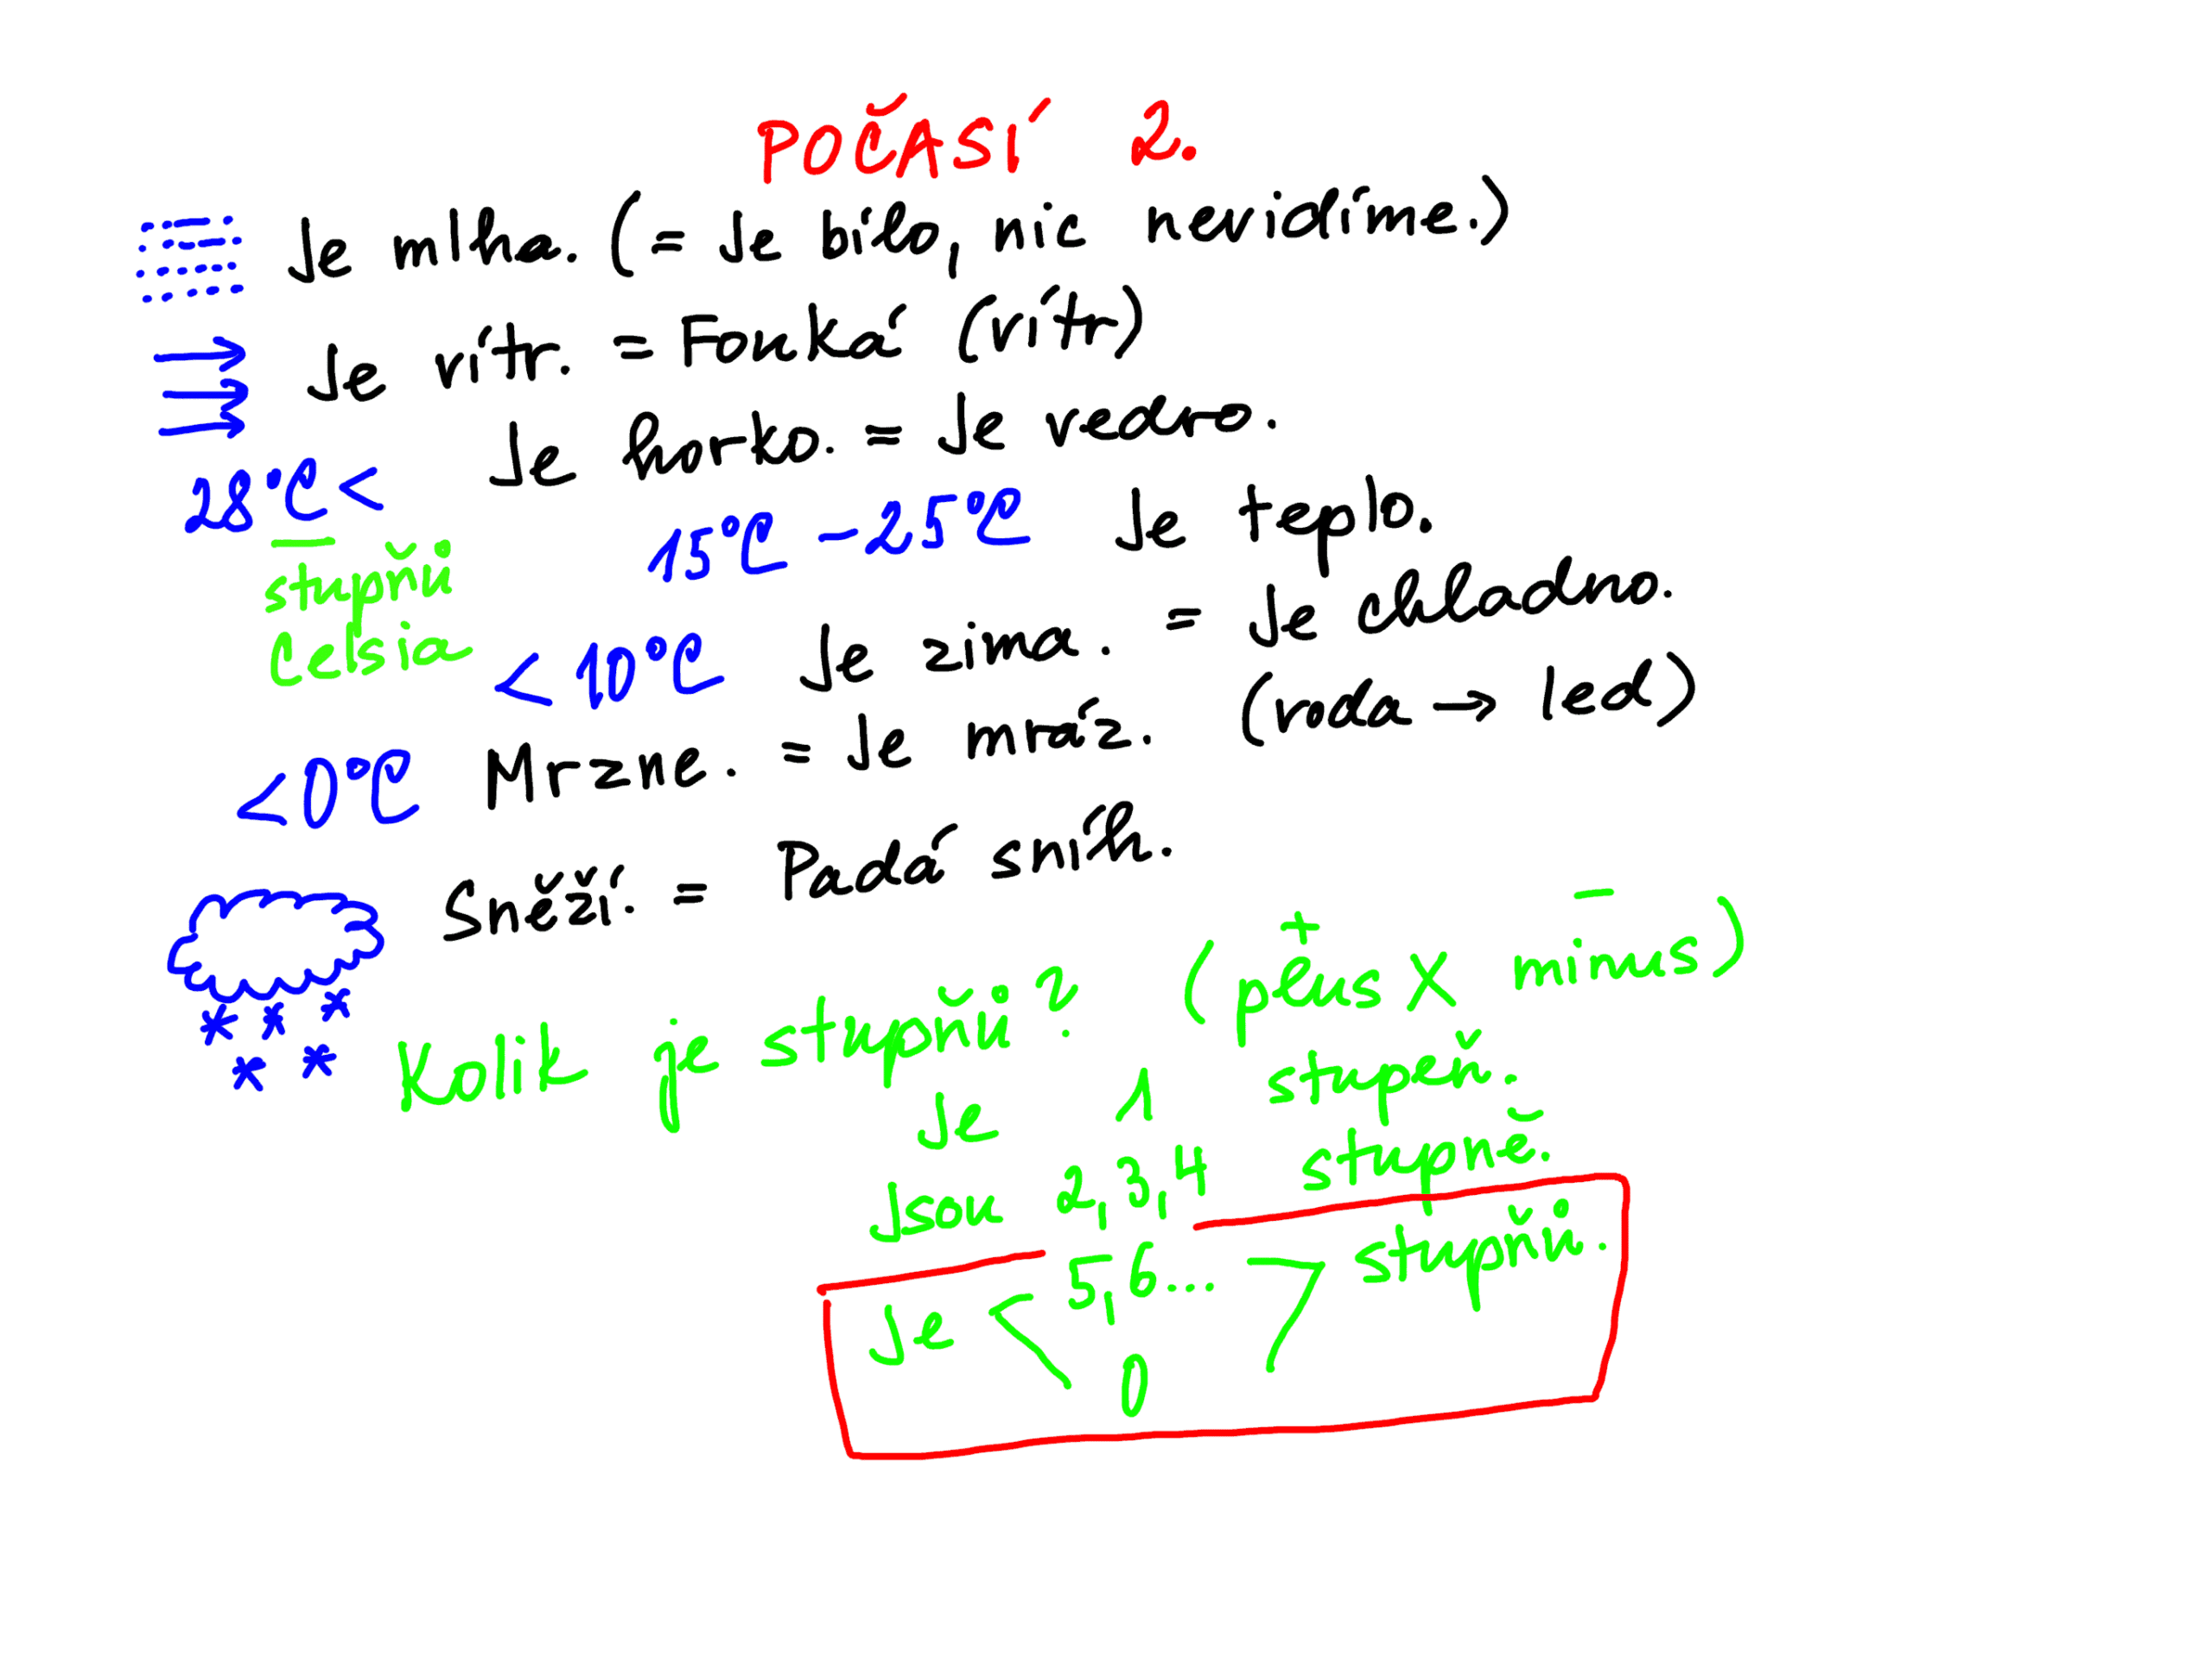 POČASÍ 2.
Je mlha. (= Je bílo, nic nevidíme.)
Je vítr. = Fouká (vítr)
28°C < Je horko. = Je vedro.
stupňů
Celsia
15°C - 25°C Je teplo.
< 10°C Je zima. = Je chladno.
<0°C Mrzne. = Je mráz. (voda → led)
Sněží. = Padá sníh.
+ −
Kolik je stupňů? (plus X minus)
Je 1 stupeň.
Jsou 2,3,4 stupně.
Je < 5,6... > stupňů.
0